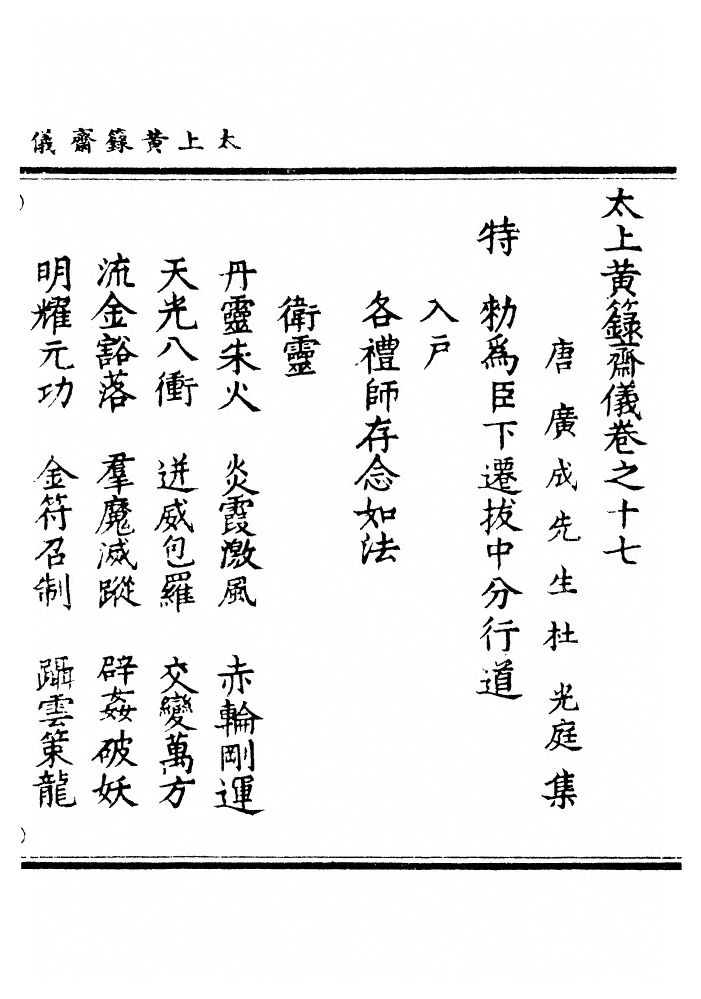 太上黄籙齋儀
太上黄籙齋儀卷之十七
唐廣成先生杜光庭集
特 勑爲臣下遷拔中分行道
入戶
各禮師存念如法
衛靈
丹靈朱火 炎霞激風 赤輪剛運
天光八衝 迸威包羅 交變萬方
流金豁落 羣魔滅蹤 辟姦破妖
明耀元功 金符召制 躡雲策龍